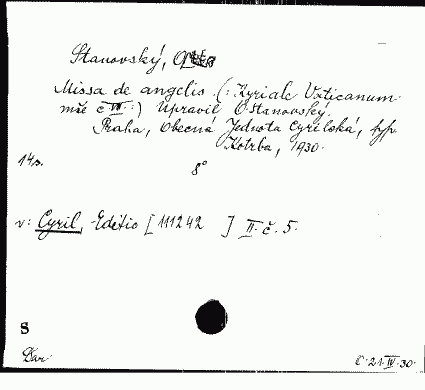 Stanovský, Otto
Missa de angelis. (: Kyriale Vaticanum
mše č. :) Upravil O. Stanovský.
Praha, Obecná Jednota Cyrilská, typ.
Kotrba, 1930.
14 s. 8°
v: Cyril, Editio [111242 ] II. č. 5.
S
Dar C 21 IV 30.